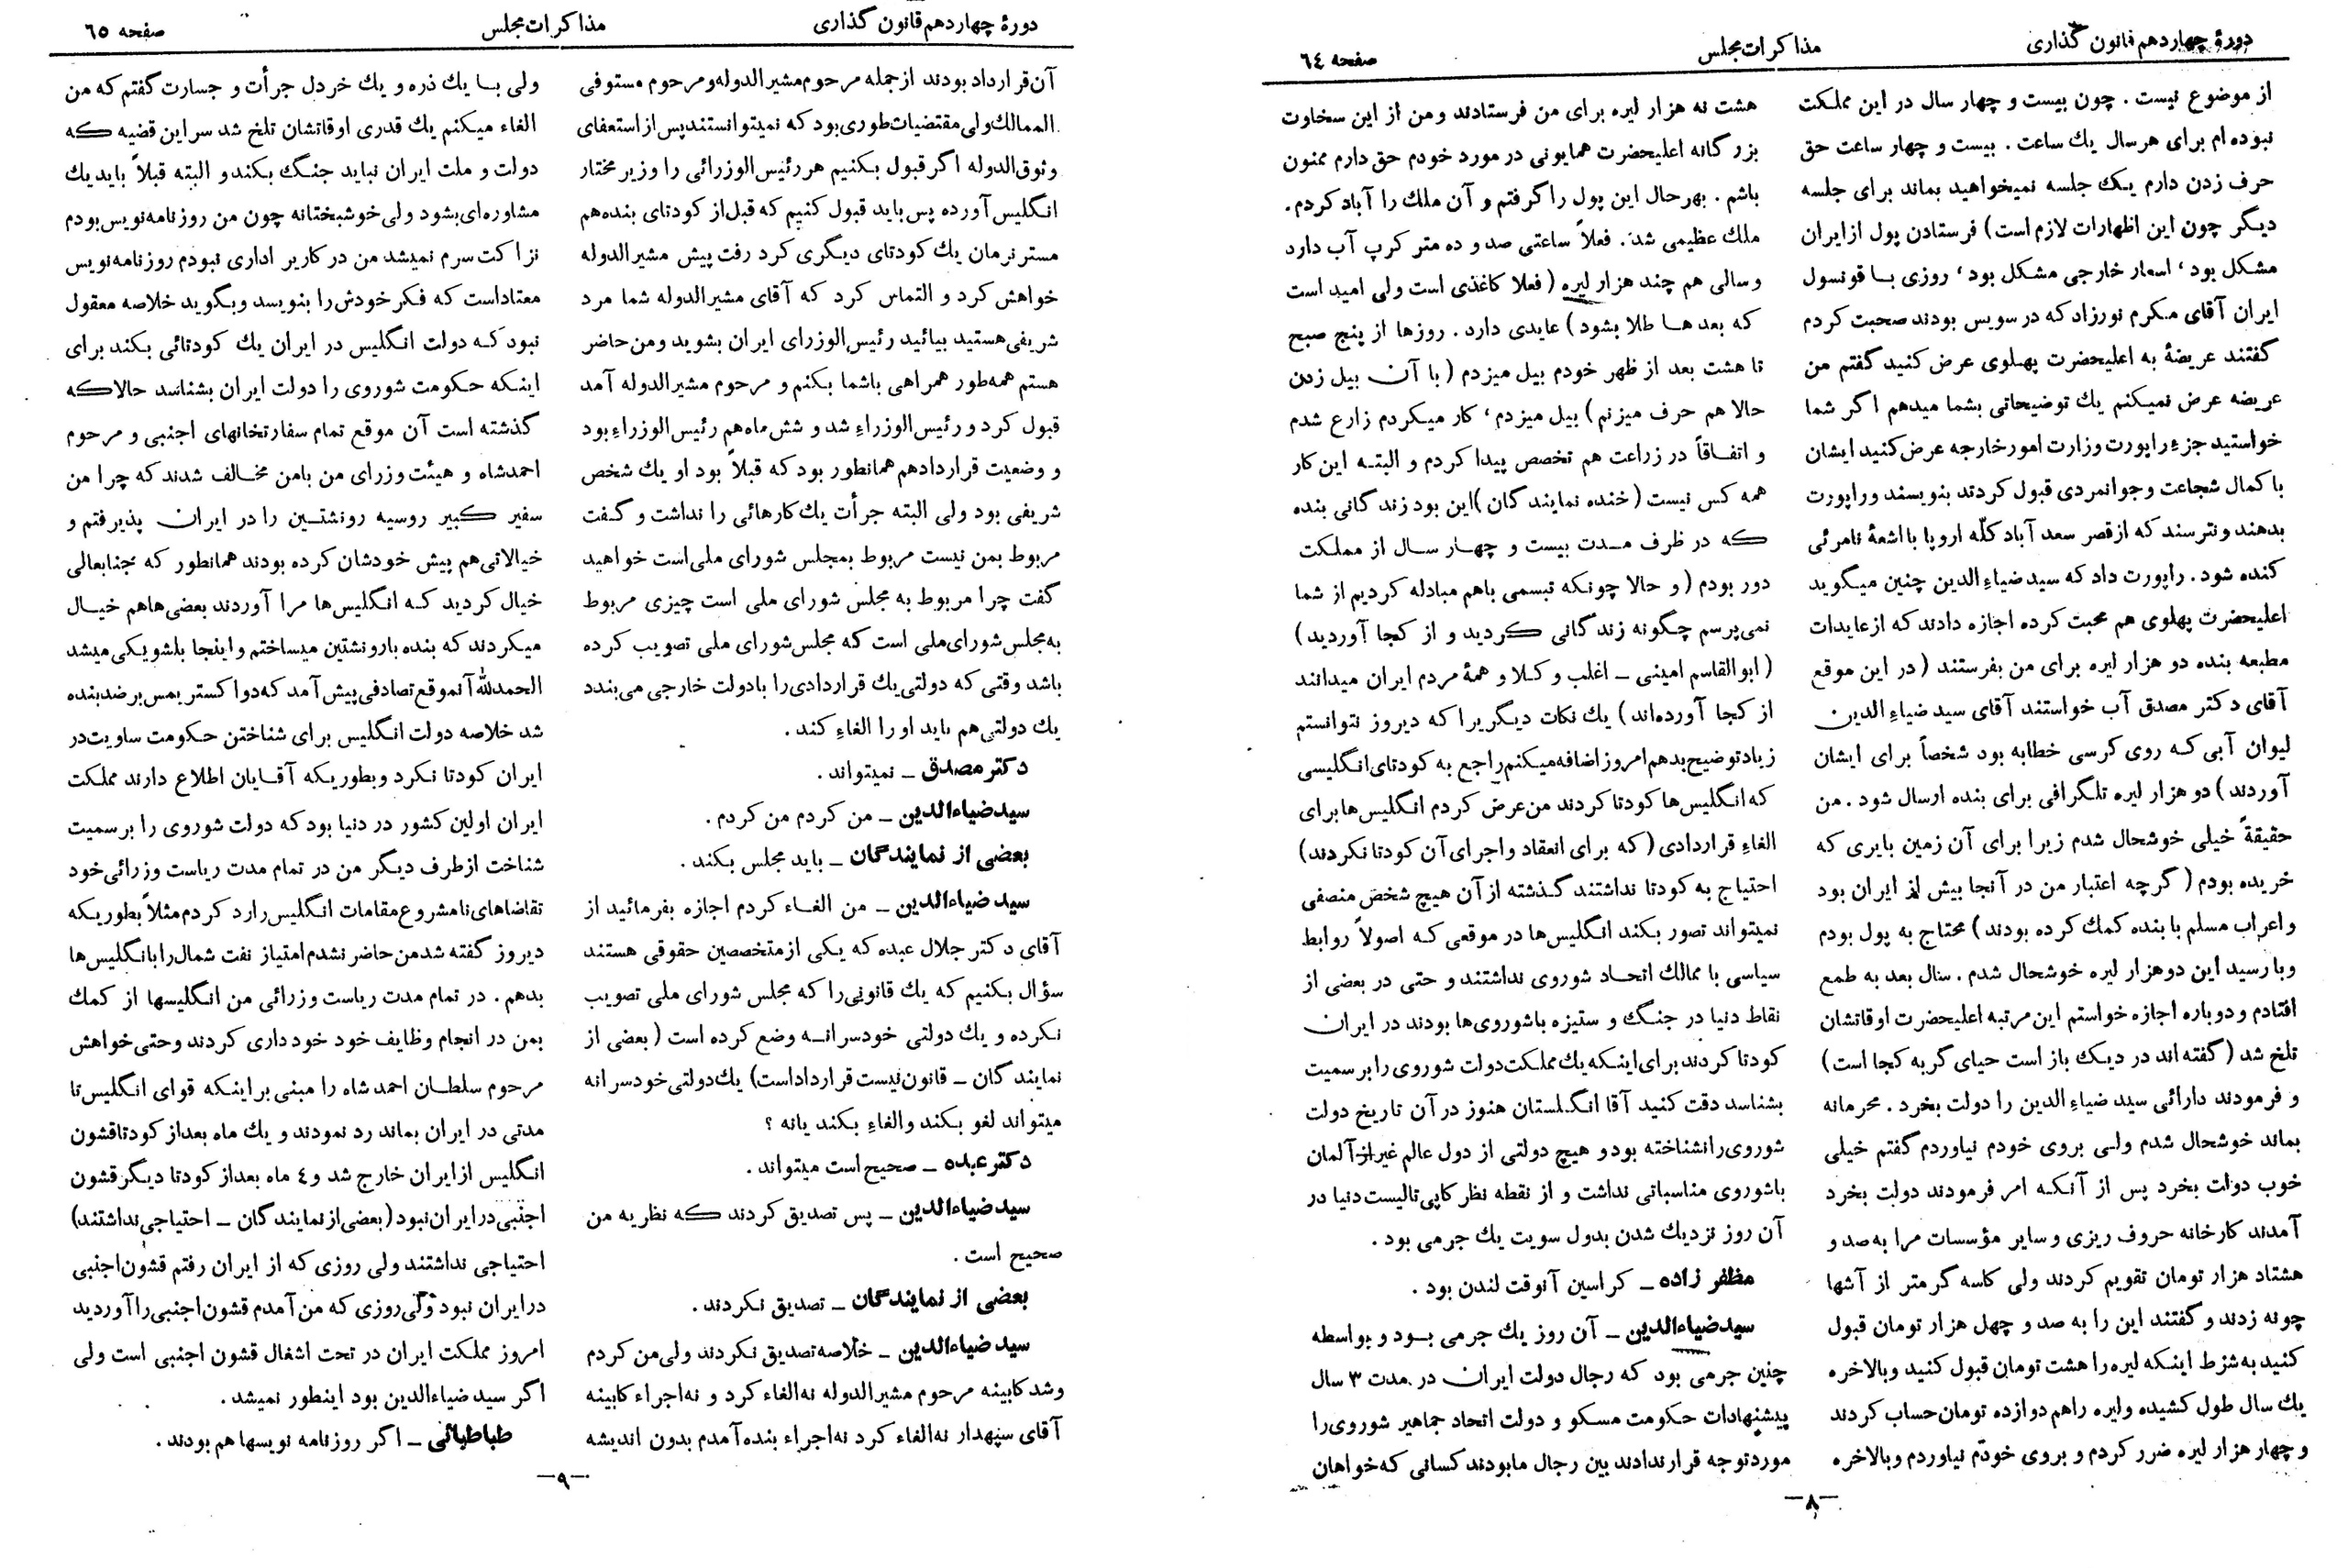 دورهٔ چهاردهم قانون گذاری
مذاکرات مجلس
صفحه ٦٤
از موضوع نیست . چون بیست و چهار سال در این مملکت
نبوده ام برای هر سال یك ساعت . بیست و چهار ساعت حق
حرف زدن دارم یك جلسه نمیخواهید بماند برای جلسه
دیگر چون این اظهارات لازم است) فرستادن پول از ایران
مشکل بود ، اسعار خارجی مشکل بود ، روزی با قونسول
ایران آقای مکرم نورزاد که در سویس بودند صحبت کردم
گفتند عریضهٔ به اعلیحضرت پهلوی عرض کنید گفتم من
عریضه عرض نمیکنم یك توضیحاتی بشما میدهم اگر شما
خواستید جزء راپورت وزارت امور خارجه عرض کنید ایشان
با کمال شجاعت و جوانمردی قبول کردند بنویسند و راپورت
بدهند و نترسند که از قصر سعد آباد کلّه اروپا با اشعهٔ نامرئی
کنده شود . راپورت داد که سید ضیاء الدین چنین میگوید
اعلیحضرت پهلوی هم محبت کرده اجازه دادند که از عایدات
مطبعه بنده دو هزار لیره برای من بفرستند ( در این موقع
آقای دکتر مصدق آب خواستند آقای سید ضیاء الدین
لیوان آبی که روی کرسی خطابه بود شخصاً برای ایشان
آوردند ) دو هزار لیره تلگرافی برای بنده ارسال شود . من
حقیقةً خیلی خوشحال شدم زیرا برای آن زمین بایری که
خریده بودم ( گرچه اعتبار من در آنجا بیش از ایران بود
و اعراب مسلم با بنده کمك کرده بودند ) محتاج به پول بودم
و با رسید این دو هزار لیره خوشحال شدم . سال بعد به طمع
افتادم و دوباره اجازه خواستم این مرتبه اعلیحضرت اوقاتشان
تلخ شد (گفته اند در دیك باز است حیای گربه کجا است)
و فرمودند دارائی سید ضیاء الدین را دولت بخرد . محرمانه
بماند خوشحال شدم ولی بروی خودم نیاوردم گفتم خیلی
خوب دولت بخرد پس از آنکه امر فرمودند دولت بخرد
آمدند کارخانه حروف ریزی و سایر مؤسسات مرا به صد و
هشتاد هزار تومان تقویم کردند ولی کاسه گرمتر از آشها
چونه زدند و گفتند این را به صد و چهل هزار تومان قبول
کنید به شرط اینکه لیره را هشت تومان قبول کنید و بالاخره
یك سال طول کشیده و لیره راهم دوازده تومان حساب کردند
و چهار هزار لیره ضرر کردم و بروی خودم نیاوردم و بالاخره
هشت نه هزار لیره برای من فرستادند و من از این سخاوت
بزرگانه اعلیحضرت همایونی در مورد خودم حق دارم ممنون
باشم . بهرحال این پول را گرفتم و آن ملك را آباد کردم .
ملك عظیمی شد . فعلاً ساعتی صد و ده متر کرپ آب دارد
و سالی هم چند هزار لیره ( فعلا کاغذی است ولی امید است
که بعد ها طلا بشود ) عایدی دارد . روزها از پنج صبح
تا هشت بعد از ظهر خودم بیل میزدم ( با آن بیل زدن
حالا هم حرف میزنم ) بیل میزدم ، کار میکردم زارع شدم
و اتفاقاً در زراعت هم تخصص پیدا کردم و البته این کار
همه کس نیست ( خنده نمایندگان ) این بود زندگانی بنده
که در ظرف مدت بیست و چهار سال از مملکت
دور بودم ( و حالا چونکه تبسمی باهم مبادله کردیم از شما
نمی پرسم چگونه زندگانی کردید و از کجا آوردید )
( ابوالقاسم امینی ــ اغلب وکلا و همهٔ مردم ایران میدانند
از کجا آورده اند ) یك نکات دیگریرا که دیروز نتوانستم
زیاد توضیح بدهم امروز اضافه میکنم راجع به کودتای انگلیسی
که انگلیس ها کودتا کردند من عرض کردم انگلیس ها برای
الغاء قراردادی (که برای انعقاد و اجرای آن کودتا نکردند)
احتیاج به کودتا نداشتند گذشته از آن هیچ شخص منصفی
نمیتواند تصور بکند انگلیس ها در موقعی که اصولاً روابط
سیاسی با ممالك اتحاد شوروی نداشتند و حتی در بعضی از
نقاط دنیا در جنگ و ستیزه باشوروی ها بودند در ایران
کودتا کردند برای اینکه یك مملکت دولت شوروی را برسمیت
بشناسد دقت کنید آقا انگلستان هنوز در آن تاریخ دولت
شوروی را نشناخته بود و هیچ دولتی از دول عالم غیر از آلمان
با شوروی مناسباتی نداشت و از نقطه نظر کاپی تالیست دنیا در
آن روز نزدیك شدن بدول سویت یك جرمی بود .
مظفر زاده ــ کراسین آنوقت لندن بود .
سید ضیاءالدین ــ آن روز یك جرمی بود و بواسطه
چنین جرمی بود که رجال دولت ایران در مدت ۳ سال
پیشنهادات حکومت مسکو و دولت اتحاد جماهیر شوروی را
مورد توجه قرار ندادند بین رجال ما بودند کسانی که خواهان
ــ۸ــ
دورهٔ چهاردهم قانون گذاری
مذاکرات مجلس
صفحه ٦٥
آن قرارداد بودند از جمله مرحوم مشیرالدوله و مرحوم مستوفی
الممالك ولی مقتضیات طوری بود که نمیتوانستند پس از استعفای
وثوق الدوله اگر قبول بکنیم هر رئیس الوزرائی را وزیر مختار
انگلیس آورده پس باید قبول کنیم که قبل از کودتای بنده هم
مستر نرمان یك کودتای دیگری کرد رفت پیش مشیر الدوله
خواهش کرد و التماس کرد که آقای مشیر الدوله شما مرد
شریفی هستید بیائید رئیس الوزرای ایران بشوید و من حاضر
هستم همه طور همراهی باشما بکنم و مرحوم مشیر الدوله آمد
قبول کرد و رئیس الوزراء شد و شش ماه هم رئیس الوزراء بود
و وضعیت قرارداد هم همانطور بود که قبلاً بود او یك شخص
شریفی بود ولی البته جرأت یك کارهائی را نداشت و گفت
مربوط بمن نیست مربوط بمجلس شورای ملی است خواهید
گفت چرا مربوط به مجلس شورای ملی است چیزی مربوط
به مجلس شورای ملی است که مجلس شورای ملی تصویب کرده
باشد وقتی که دولتی یك قراردادی را با دولت خارجی می بندد
یك دولتی هم باید او را الغاء کند .
دکتر مصدق ــ نمیتواند .
سید ضیاءالدین ــ من کردم من کردم .
بعضی از نمایندگان ــ باید مجلس بکند .
سید ضیاءالدین ــ من الغاء کردم اجازه بفرمائید از
آقای دکتر جلال عبده که یکی از متخصصین حقوقی هستند
سؤال بکنیم که یك قانونی را که مجلس شورای ملی تصویب
نکرده و یك دولتی خودسرانه وضع کرده است ( بعضی از
نمایندگان ــ قانون نیست قرارداد است) یك دولتی خودسرانه
میتواند لغو بکند و الغاء بکند یا نه ؟
دکتر عبده ــ صحیح است میتواند .
سید ضیاءالدین ــ پس تصدیق کردند که نظریه من
صحیح است .
بعضی از نمایندگان ــ تصدیق نکردند .
سید ضیاءالدین ــ خلاصه تصدیق نکردند ولی من کردم
و شد کابینه مرحوم مشیر الدوله نه الغاء کرد و نه اجراء کابینه
آقای سپهدار نه الغاء کرد نه اجراء بنده آمدم بدون اندیشه
ولی با یك ذره و یك خردل جرأت و جسارت گفتم که من
الغاء میکنم یك قدری اوقاتشان تلخ شد سر این قضیه که
دولت و ملت ایران نباید جنگ بکند و البته قبلاً باید یك
مشاوره ای بشود ولی خوشبختانه چون من روزنامه نویس بودم
نزاکت سرم نمیشد من در کاریر اداری نبودم روزنامه نویس
معتاد است که فکر خودش را بنویسد و بگوید خلاصه معقول
نبود که دولت انگلیس در ایران یك کودتائی بکند برای
اینکه حکومت شوروی را دولت ایران بشناسد حالا که
گذشته است آن موقع تمام سفارتخانهای اجنبی و مرحوم
احمد شاه و هیئت وزرای من بامن مخالف شدند که چرا من
سفیر کبیر روسیه رونشتین را در ایران پذیرفتم و
خیالاتی هم پیش خودشان کرده بودند همانطور که جنابعالی
خیال کردید که انگلیس ها مرا آوردند بعضی ها هم خیال
میکردند که بنده با رونشتین میساختم و اینجا بلشویکی میشد
الحمدلله آنموقع تصادفی پیش آمد که دوا کستر بمس بر ضد بنده
شد خلاصه دولت انگلیس برای شناختن حکومت ساویت در
ایران کودتا نکرد و بطوریکه آقایان اطلاع دارند مملکت
ایران اولین کشور در دنیا بود که دولت شوروی را برسمیت
شناخت از طرف دیگر من در تمام مدت ریاست وزرائی خود
تقاضاهای نامشروع مقامات انگلیس را رد کردم مثلاً بطوریکه
دیروز گفته شد من حاضر نشدم امتیاز نفت شمال را بانگلیس ها
بدهم . در تمام مدت ریاست وزرائی من انگلیسها از کمك
بمن در انجام وظایف خود خود داری کردند و حتی خواهش
مرحوم سلطان احمد شاه را مبنی بر اینکه قوای انگلیس تا
مدتی در ایران بماند رد نمودند و یك ماه بعد از کودتا قشون
انگلیس از ایران خارج شد و ٤ ماه بعد از کودتا دیگر قشون
اجنبی در ایران نبود (بعضی از نمایندگان ــ احتیاجی نداشتند)
احتیاجی نداشتند ولی روزی که از ایران رفتم قشون اجنبی
در ایران نبود ولی روزی که من آمدم قشون اجنبی را آوردید
امروز مملکت ایران در تحت اشغال قشون اجنبی است ولی
اگر سید ضیاءالدین بود اینطور نمیشد .
طباطبائی ــ اگر روزنامه نویسها هم بودند .
ــ۹ــ